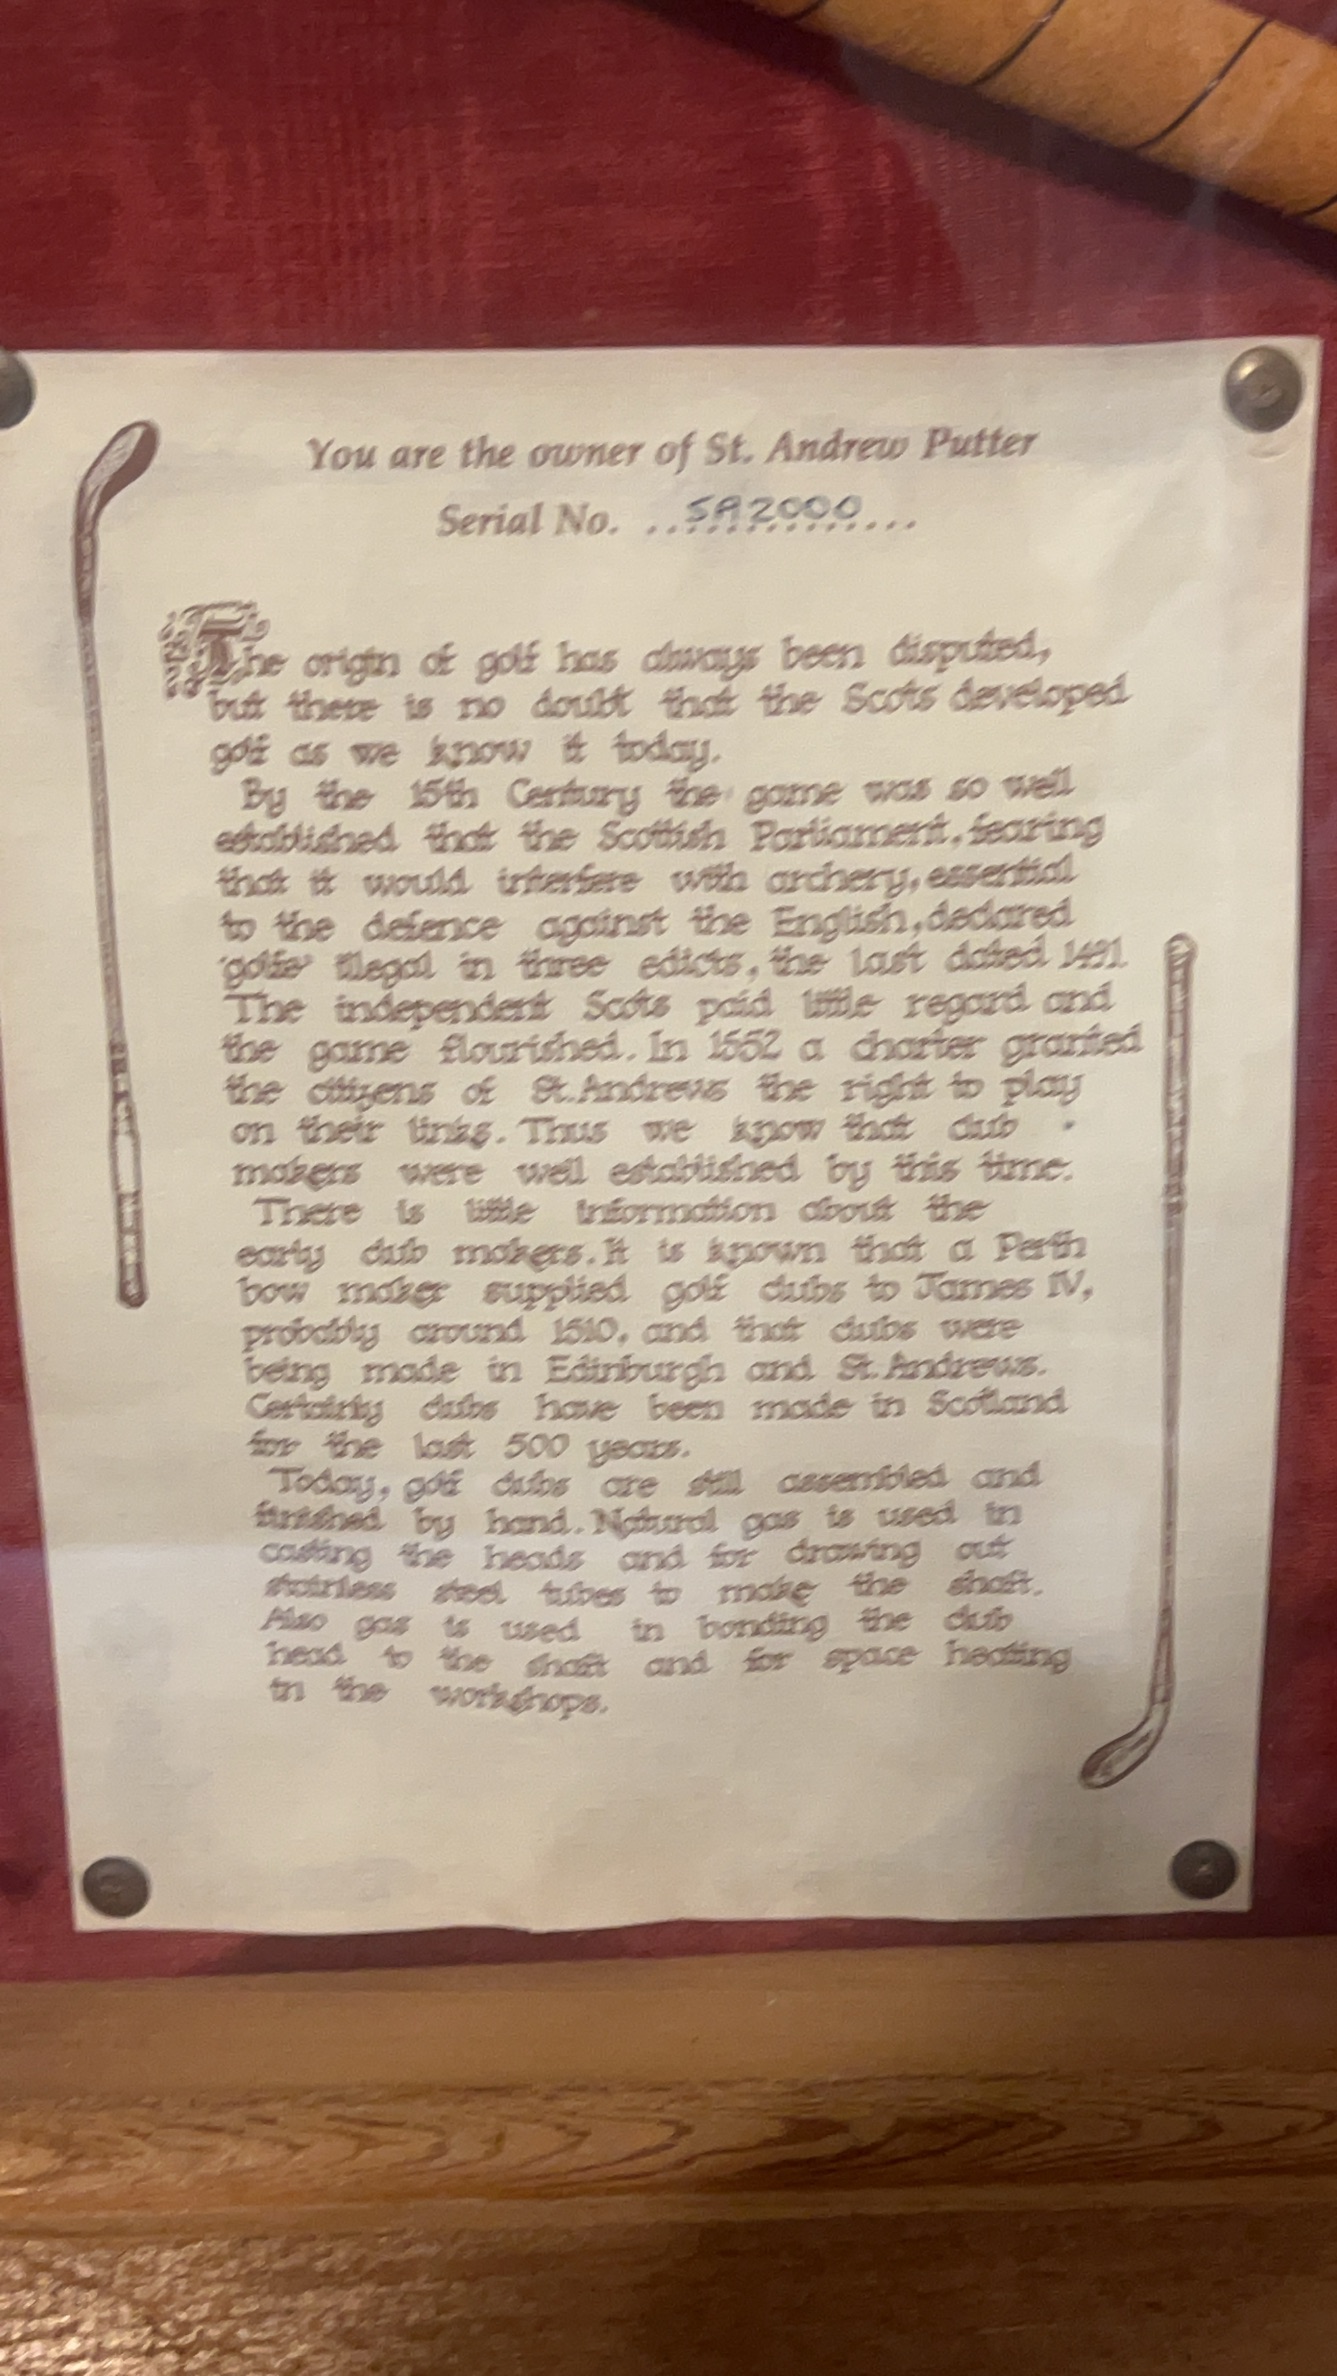 You are the owner of St. Andrew Putter
Serial No. ..SA2000....
The origin of golf has always been disputed,
but there is no doubt that the Scots developed
golf as we know it today.
By the 15th Century the game was so well
established that the Scottish Parliament, fearing
that it would interfere with archery, essential
to the defence against the English, declared
'golfe' illegal in three edicts, the last dated 1491.
The independent Scots paid little regard and
the game flourished. In 1552 a charter granted
the citizens of St. Andrews the right to play
on their links. Thus we know that club
makers were well established by this time.
There is little information about the
early club makers. It is known that a Perth
bow maker supplied golf clubs to James IV,
probably around 1510, and that clubs were
being made in Edinburgh and St. Andrews.
Certainly clubs have been made in Scotland
for the last 500 years.
Today, golf clubs are still assembled and
finished by hand. Natural gas is used in
casting the heads and for drawing out
stainless steel tubes to make the shaft.
Also gas is used in bonding the club
head to the shaft and for space heating
in the workshops.